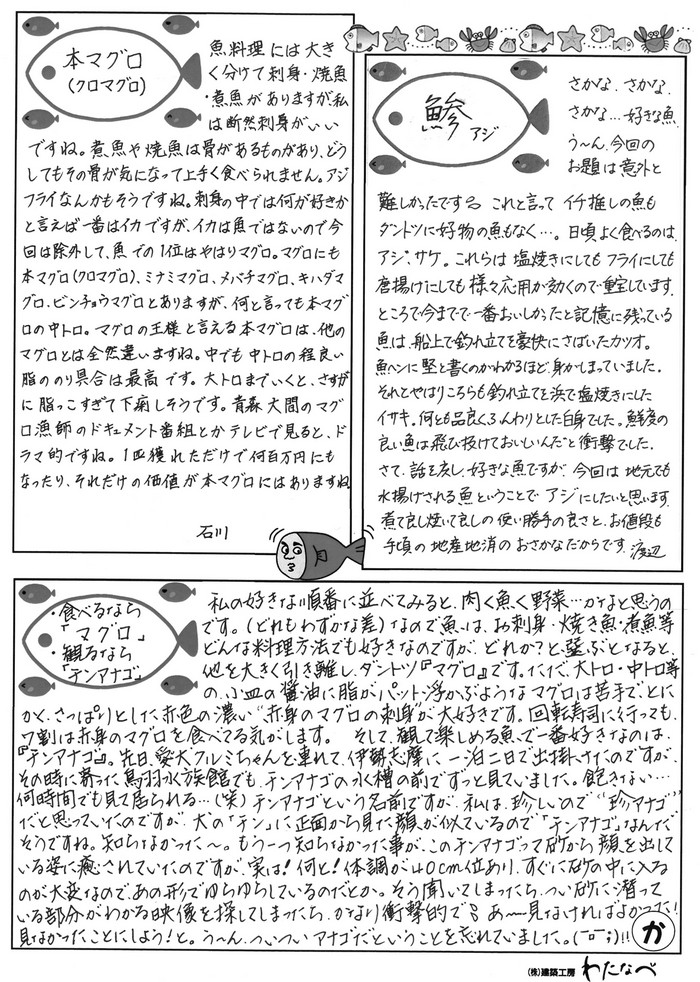 本マグロ
(クロマグロ)
魚料理には大き
く分けて刺身・焼魚
・煮魚がありますが私
は断然刺身がいい
ですね。煮魚や焼魚は骨があるものがあり、どう
してもその骨が気になって上手く食べられません。アジ
フライなんかもそうですね。刺身の中では何が好きか
と言えば一番はイカですが、イカは魚ではないので今
回は除外して、魚での1位はやはりマグロ。マグロにも
本マグロ(クロマグロ)、ミナミマグロ、メバチマグロ、キハダマ
グロ、ビンチョウマグロとありますが、何と言っても本マグ
ロの中トロ。マグロの王様と言える本マグロは、他の
マグロとは全然違いますね。中でも中トロの程良い
脂ののり具合は最高です。大トロまでいくと、さすが
に脂っこすぎて下痢しそうです。青森大間のマグ
ロ漁師のドキュメント番組とかテレビで見ると、ド
ラマ的ですね。1匹獲れただけで何百万円にも
なったり、それだけの価値が本マグロにはありますね。
石川
鯵 アジ
さかな、さかな、
さかな…好きな魚、
う〜ん、今回の
お題は意外と
難しかったです これと言って イチ推しの魚も
ダントツに好物の魚もなく…。日頃よく食べるのは、
アジ、サケ。これらは塩焼きにしてもフライにしても
唐揚げにしても様々応用が効くので重宝しています。
ところで今までで一番おいしかったと記憶に残っている
魚は、船上で釣れ立てを豪快にさばいたカツオ。
魚へんに堅と書くのがわかるほど、身がしまっていました。
それとやはりこちらも釣れ立てを浜で塩焼きにした
イサキ。何とも品良くふんわりとした白身でした。鮮度の
良い魚は飛び抜けておいしいんだと衝撃でした。
さて、話を戻し、好きな魚ですが、今回は地元でも
水揚げされる魚ということで アジにしたいと思います。
煮て良し焼いて良しの使い勝手の良さと、お値段も
手頃の地産地消のおさかなだからです。渡辺
・食べるなら
「マグロ」
・観るなら
「テンアナゴ」
私の好きな順番に並べてみると、肉く魚く野菜…かなと思うの
です。(どれもわずかな差)なので魚は、お刺身・焼き魚・煮魚等
どんな料理方法でも好きなのですが、どれか?と選ぶとなると、
他を大きく引き離し、ダントツ『マグロ』です。ただ、大トロ・中トロ等
の、小皿の醤油に脂がパット浮かぶようなマグロは苦手でとに
かく、さっぱりとした赤色の濃い“赤身のマグロの刺身”が大好きです。回転寿司に行っても、
7割は赤身のマグロを食べてる気がします。 そして、観て楽しめる魚で一番好きなのは、
『テンアナゴ』。先日、愛犬クルミちゃんを連れて、伊勢志摩に一泊二日で出掛けたのですが、
その時に寄った鳥羽水族館でも、テンアナゴの水槽の前でずっと見ていました。飽きない…
何時間でも見て居られる…(笑)テンアナゴという名前ですが、私は、珍しいので“珍アナゴ”
だと思っていたのですが、犬の「テン」に正面から見た顔が似ているので「テンアナゴ」なんだ
そうですね。知らなかった〜。もう一つ知らなかった事が、このテンアナゴって砂から顔を出して
いる姿に癒されていたのですが、実は!何と!体調が40cm位あり、すぐに砂の中に入る
のが大変なので、あの形でゆらゆらしているのだとか。そう聞いてしまったら、つい砂に潜って
いる部分がわかる映像を探してしまったら、かなり衝撃的で あ〜見なければよかった!
見なかったことにしよう!と。う〜ん、ついついアナゴだということを忘れていました。(ーー;)!!
か
(株)建築工房 わたなべ